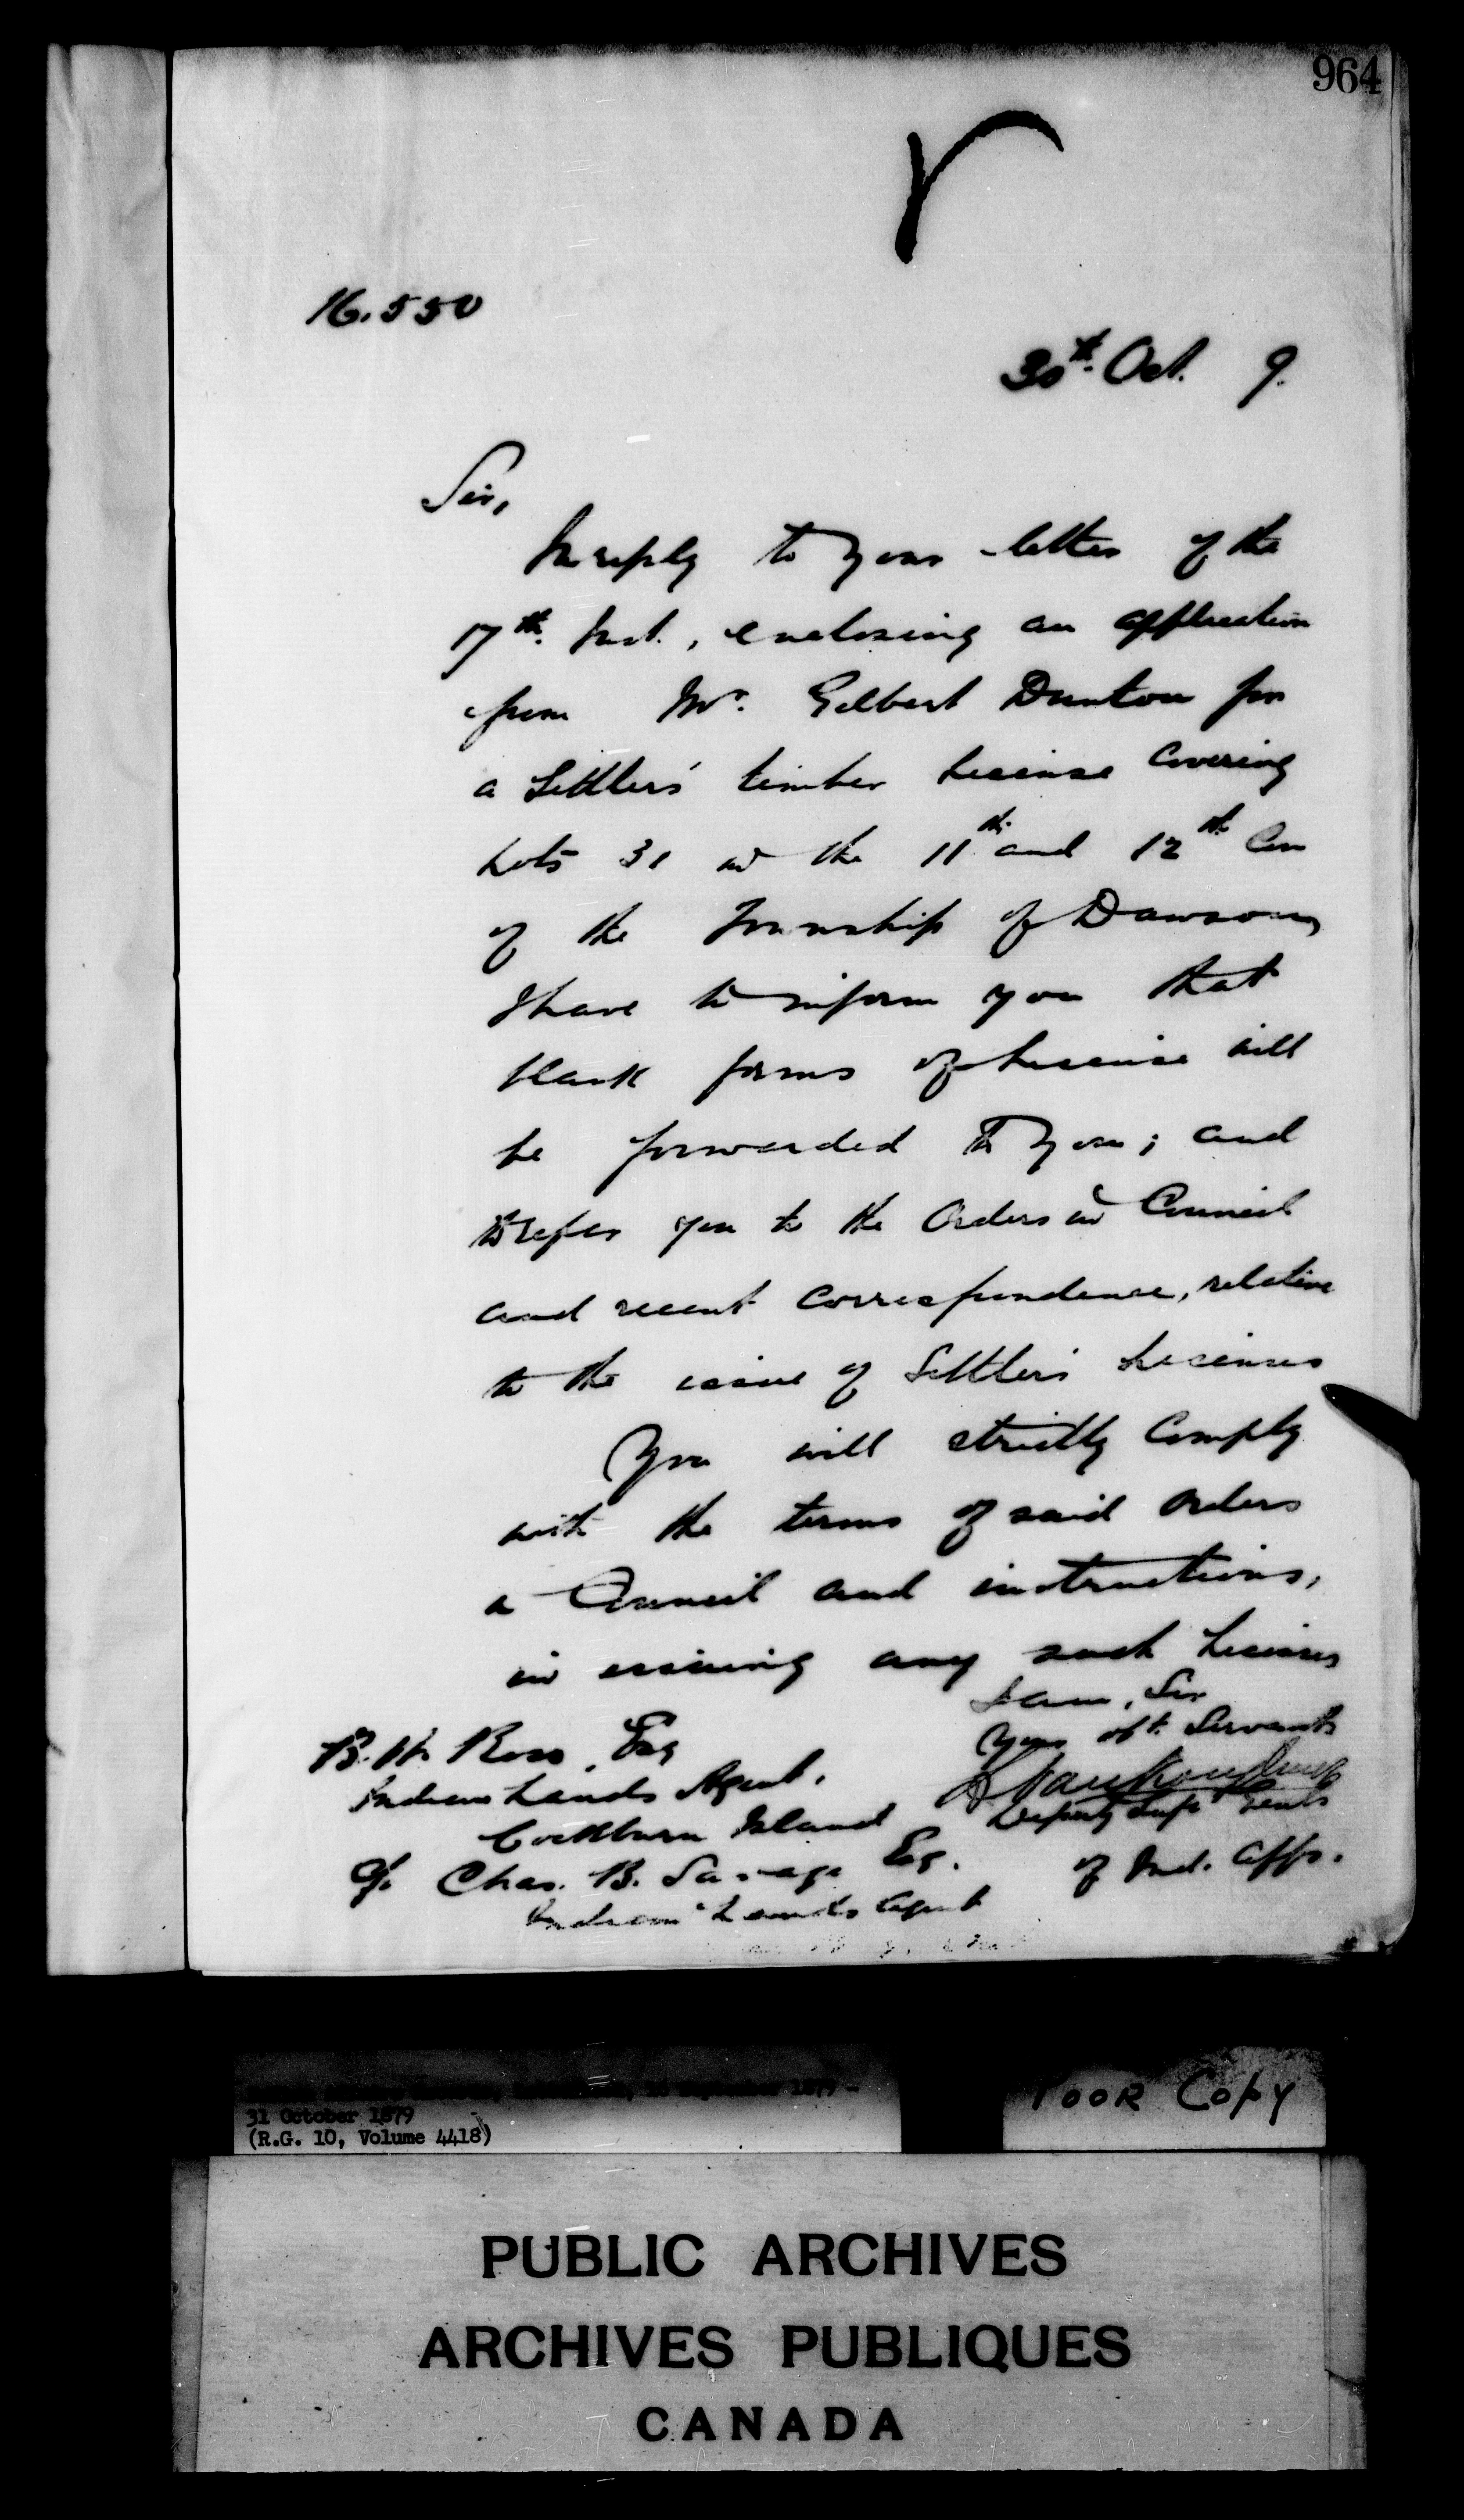 964
16.550
30th. Oct. 9.
Sir,
In reply to your letter of the
17th. Inst., enclosing an application
from Mr. Gilbert Dunton for
a Settlers' timber License covering
Lots 31 in the 11th. and 12th Con
of the Township of Dawson,
I have to inform you that
blank forms of License will
be forwarded to you; and
to refer you to the Orders in Council
and recent correspondence, relative
to the issue of Settlers' Licenses
You will strictly comply
with the terms of said Orders
in Council and instructions,
in issuing any such Licenses
I am, Sir
Your obt. Servant
L VanKoughnet
Deputy Supt Genl
of Ind. Affs.
B. W. Ross, Esq
Indian Lands Agent,
Cockburn Island
c/o Chas. B. Savage Esq.
Indian Lands Agent
September 1879 -
31 October 1879
(R.G. 10, Volume 4418)
POOR COPY
PUBLIC ARCHIVES
ARCHIVES PUBLIQUES
CANADA